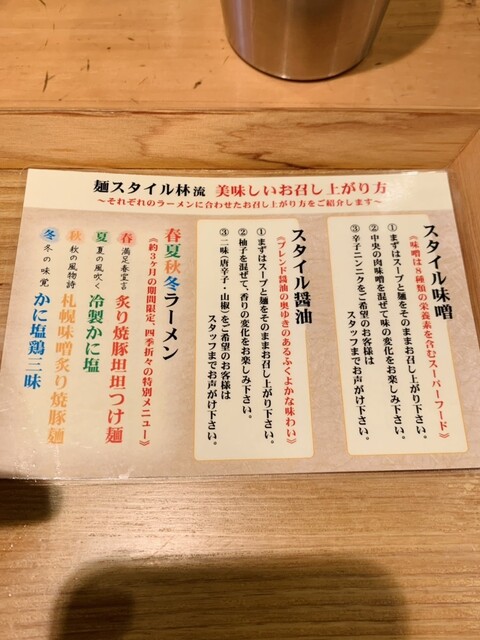 麺スタイル林流 美味しいお召し上がり方
～それぞれのラーメンに合わせたお召し上がり方をご紹介します～
スタイル味噌
《味噌は8種類の栄養素を含むスーパーフード》
①まずはスープと麺をそのままお召し上がり下さい。
②中央の肉味噌を混ぜて味の変化をお楽しみ下さい。
③辛子ニンニクをご希望のお客様は
スタッフまでお声がけ下さい。
スタイル醤油
《ブレンド醤油の奥ゆきのあるふくよかな味わい》
①まずはスープと麺をそのままお召し上がり下さい。
②柚子を混ぜて、香りの変化をお楽しみ下さい。
③二味(唐辛子・山椒)をご希望のお客様は
スタッフまでお声がけ下さい。
春夏秋冬ラーメン
《約3ヶ月の期間限定、四季折々の特別メニュー》
春 満足春宣言 炙り焼豚坦坦つけ麺
夏 夏の風吹く 冷製かに塩
秋 秋の風物詩 札幌味噌炙り焼豚麺
冬 冬の味覚 かに塩鶏三昧